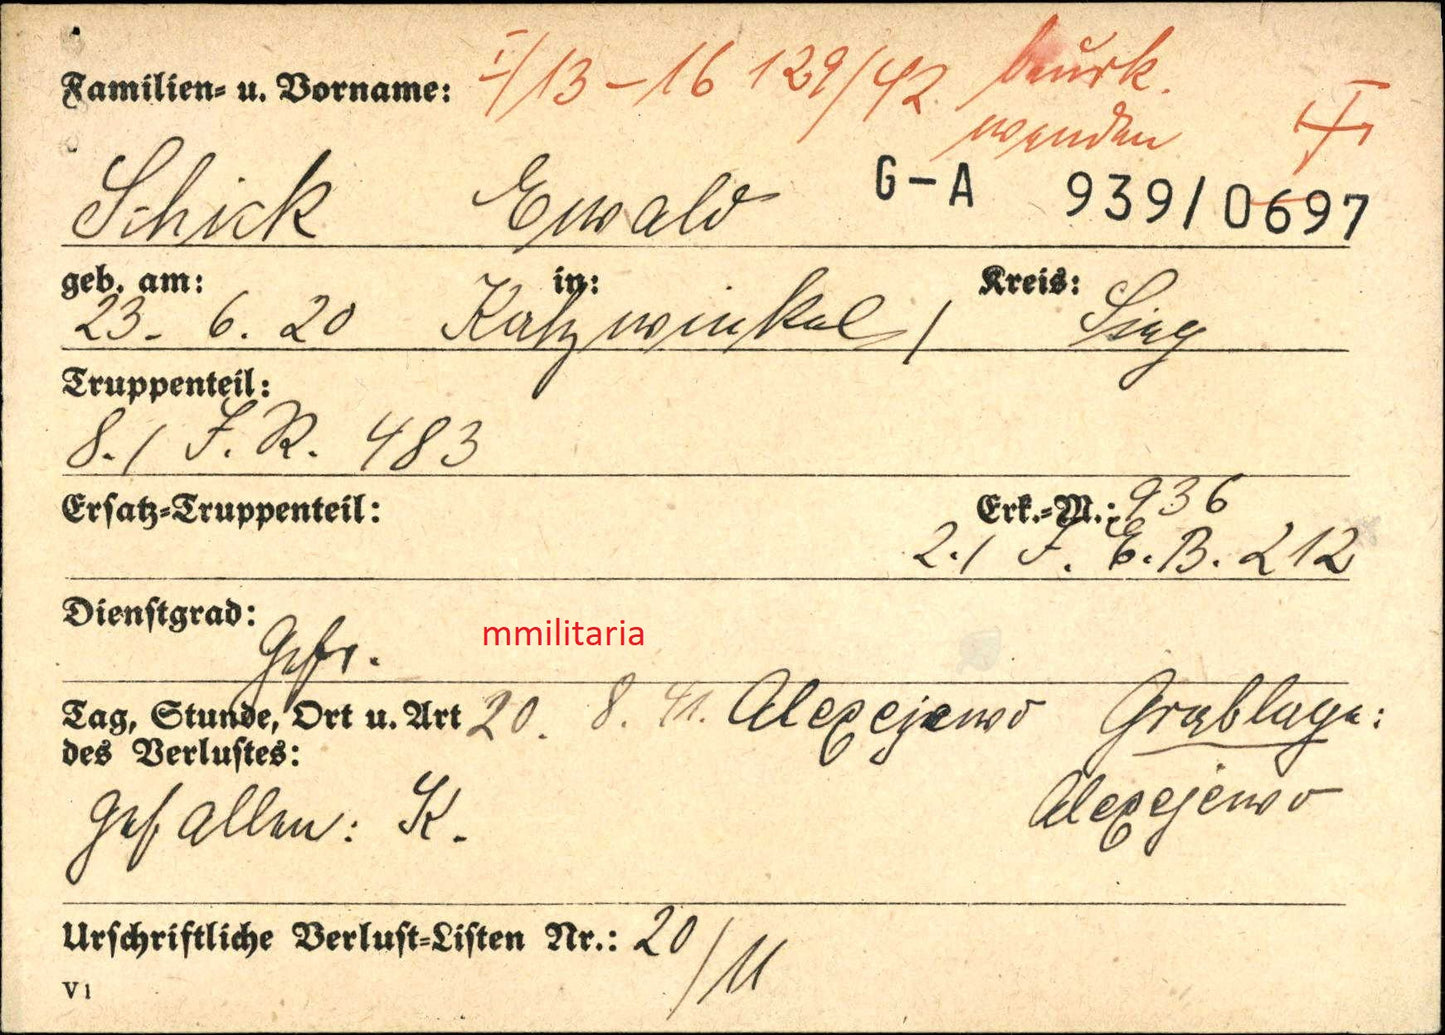 Familien- u. Vorname: I/13-16 129/42 beurk.
wenden
G-A 939/0697
Schick Ewald
geb. am: in: Kreis:
23. 6. 20 Katzwinkel / Sieg
Truppenteil:
8./ I.R. 483
Ersatz-Truppenteil: Erk.-M.: 936
2./ I.E.B. 212
Dienstgrad:
Gefr.
mmilitaria
Tag, Stunde, Ort u. Art 20. 8. 41. Alexejewo Grablage:
des Verlustes:
Alexejewo
gefallen: K.
Urschriftliche Verlust-Listen Nr.: 20/11
V1